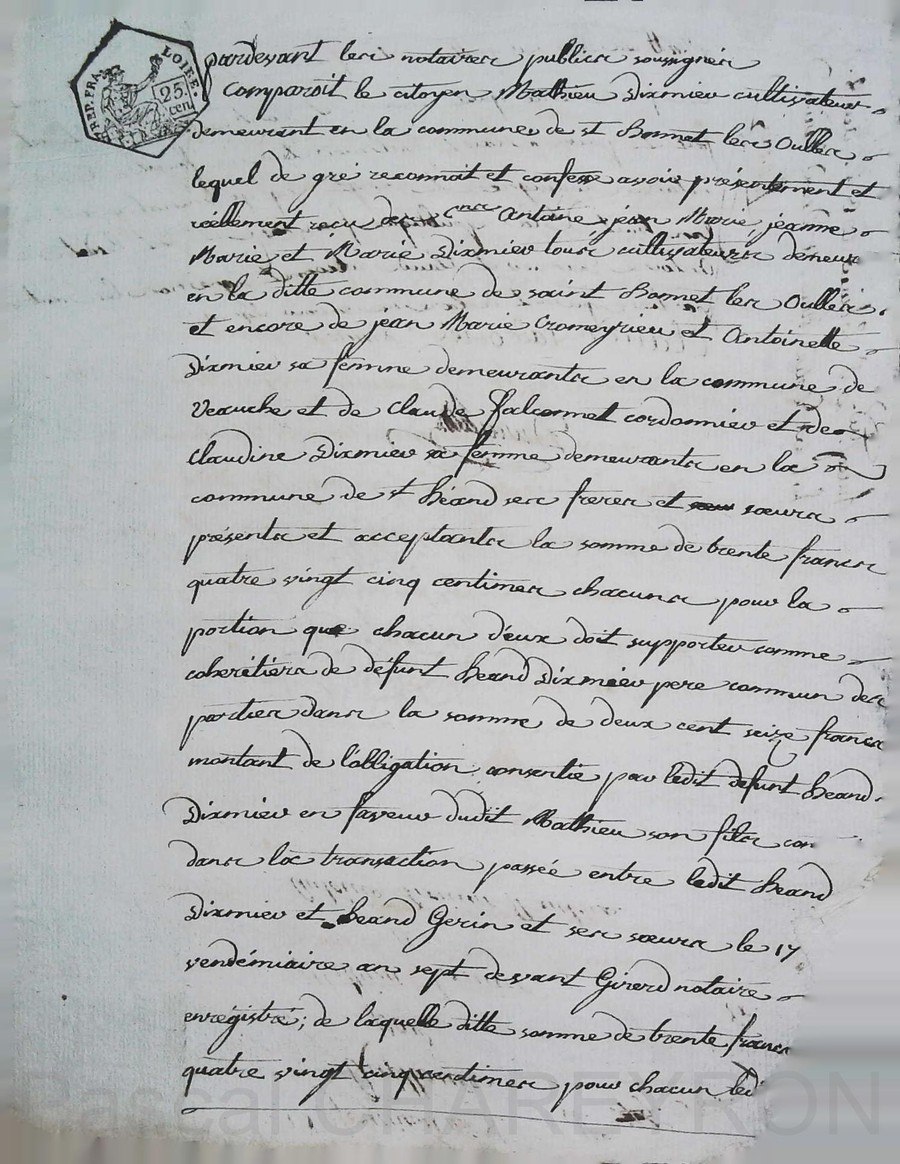 REP. FRA. LOIRE. 25. cen.
pardevant les notaires publics soussignés
Comparoit le citoyen Mathieu Dixmier cultivateur
demeurant en la commune de st Bonnet les Oulles
lequel de gré reconnoit et confesse avoir présentement et
réellement reçu des Cens Antoine, jean Marie, jeanne
Marie et Marie Dixmier tous cultivateurs demeur
en la ditte commune de saint Bonnet les Oulles
et encore de jean Marie Cromeyrieu et Antoinette
Dixmier sa femme demeurants en la commune de
Veauche et de Claude Falconnet cordonnier et de
Claudine Dixmier sa femme demeurants en la
commune de st héand ses freres et soeurs
présents et acceptants la somme de trente francs
quatre vingt cinq centimes chacuns pour la
portion que chacun d'eux doit supporter comme
coheretiers de défunt heand Dixmier pere commun des
parties dans la somme de deux cent seize francs
montant de l'obligation consentie par ledit defunt heand
Dixmier en faveur dudit Mathieu son fils
dans la transaction passée entre ledit heand
Dixmier et heand Gerin et ses soeurs le 17
vendémiaire an sept devant Girerd notaire
enregistré; de laquelle ditte somme de trente francs
quatre vingt cinq centimes pour chacun led
Pascal CHAREYRON